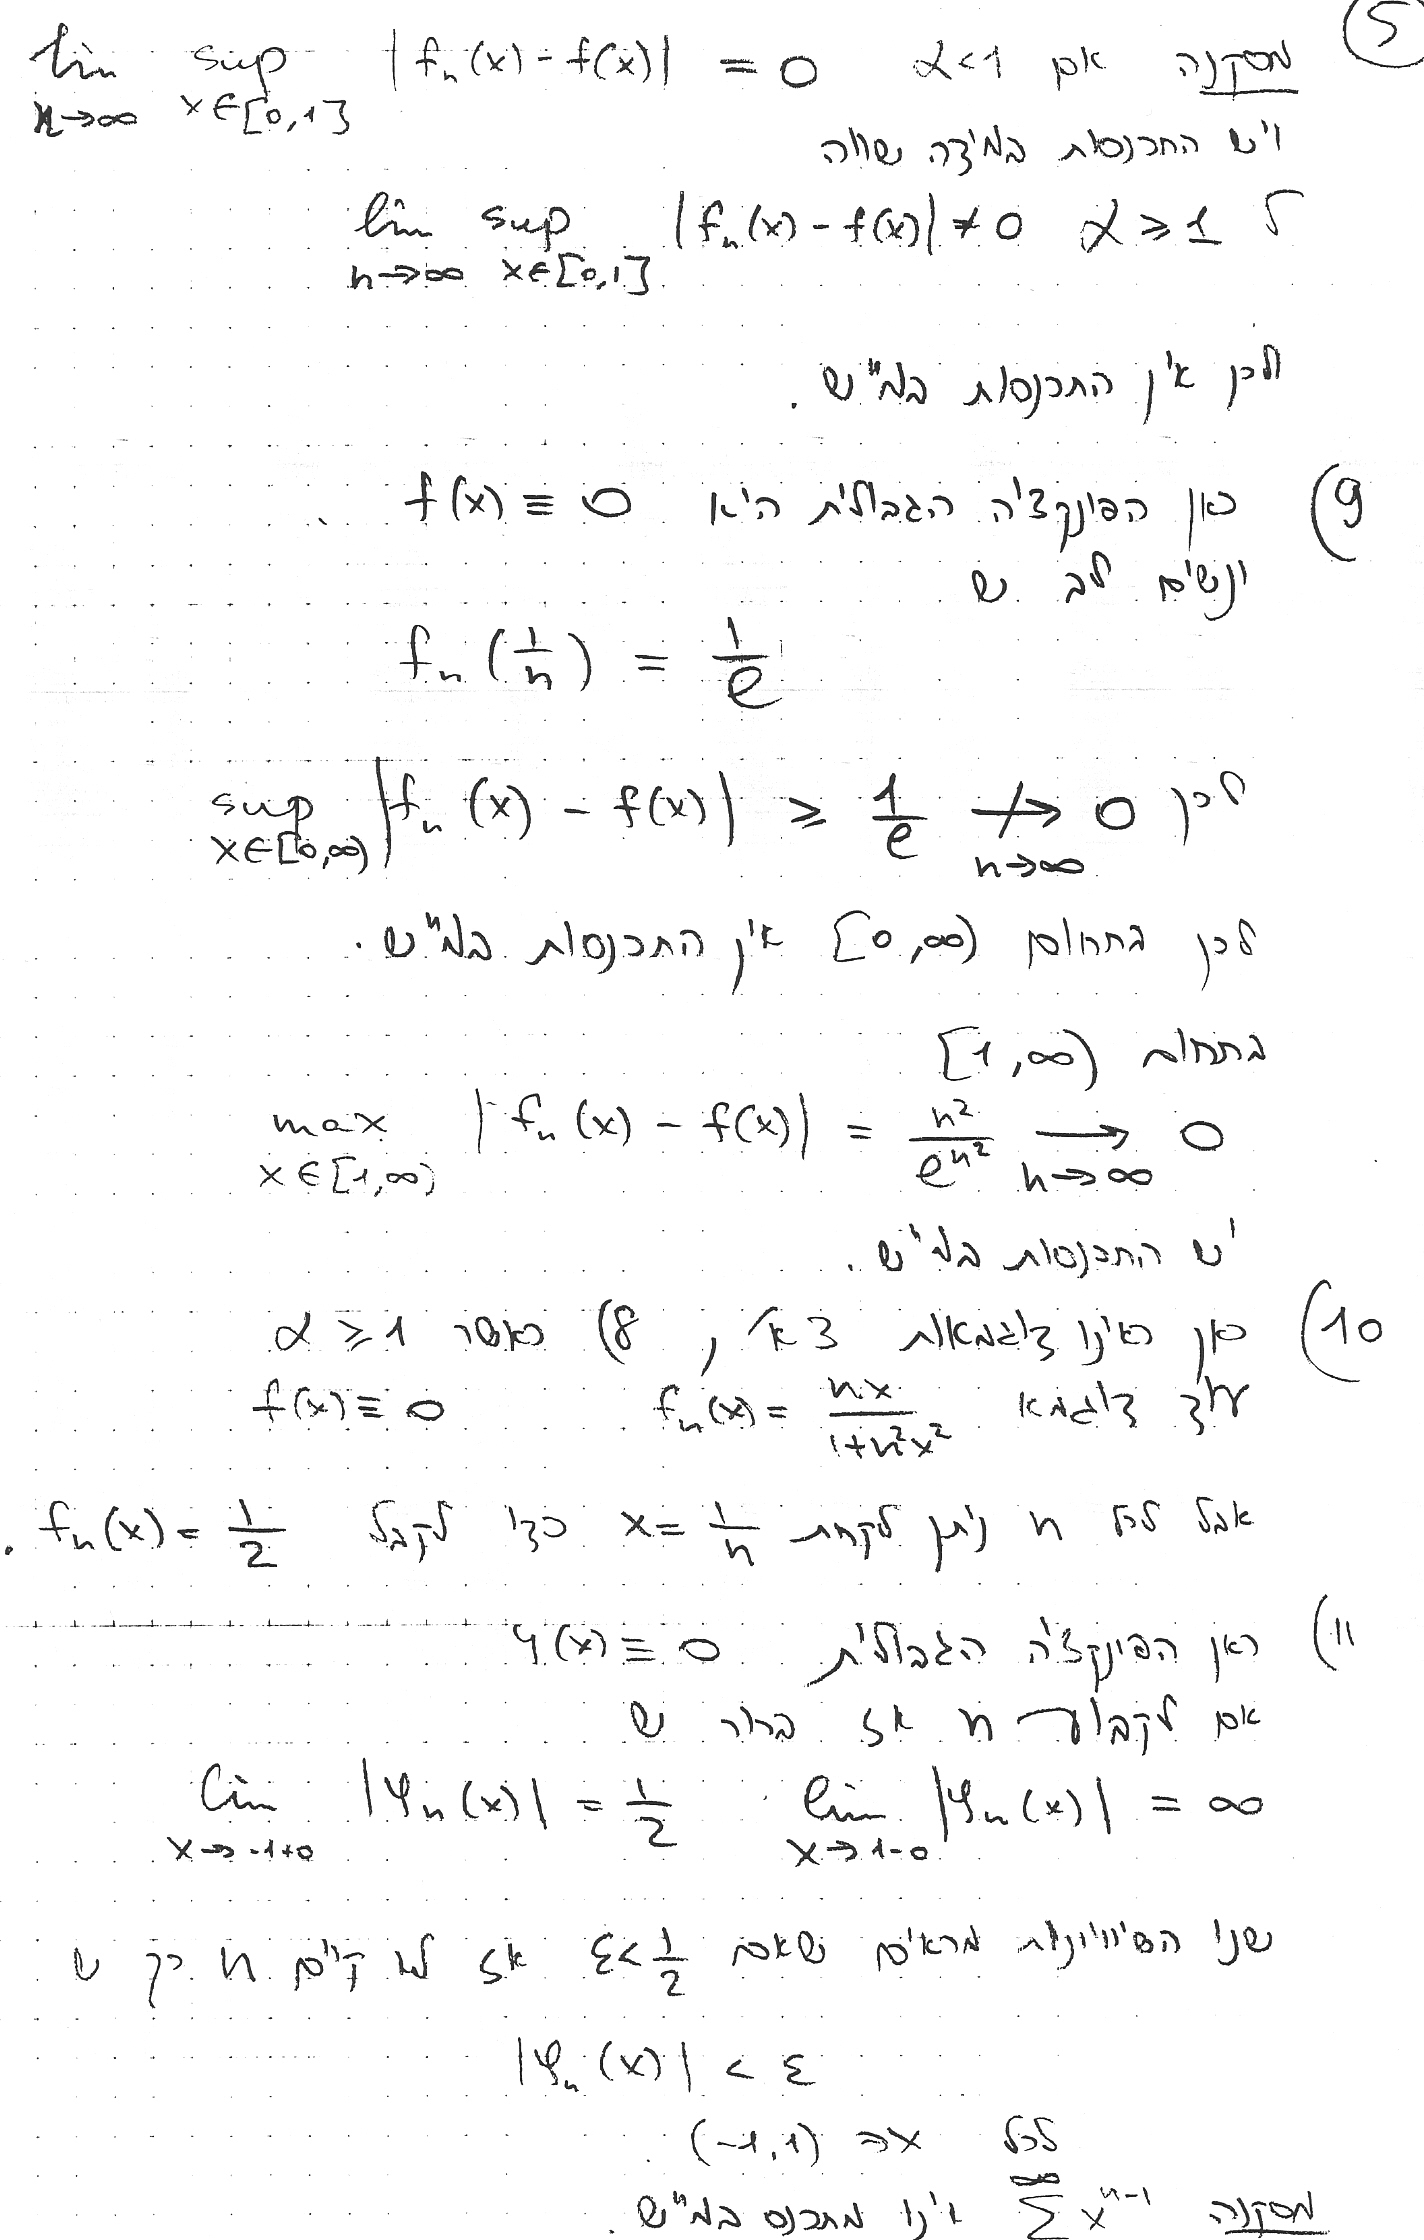 5
מסקנה אם α<1 lim_{n→∞} sup_{x∈[0,1]} |f_n(x) - f(x)| = 0
ויש התכנסות במידה שווה
ל α ≥ 1 lim_{n→∞} sup_{x∈[0,1]} |f_n(x) - f(x)| ≠ 0
ולכן אין התכנסות במ"ש.
9) כאן הפונקציה הגבולית היא f(x) ≡ 0
ונשים לב ש
f_n(1/n) = 1/e
לכן sup_{x∈[0,∞)} |f_n(x) - f(x)| ≥ 1/e ↛_{n→∞} 0
לכן בתחום [0,∞) אין התכנסות במ"ש.
בתחום [1,∞)
max_{x∈[1,∞)} |f_n(x) - f(x)| = n²/e^{n²} →_{n→∞} 0
יש התכנסות במ"ש.
10) כאן ראינו דוגמאות 3א', 8) כאשר α ≥ 1
עוד דוגמא f_n(x) = nx/(1+n²x²) f(x) ≡ 0
אבל לכל n ניתן לקחת x = 1/n כדי לקבל f_n(x) = 1/2.
11) כאן הפונקציה הגבולית φ(x) ≡ 0
אם לקבוע n אז ברור ש
lim_{x→-1+0} |φ_n(x)| = 1/2 lim_{x→1-0} |φ_n(x)| = ∞
שני השיוויונות מראים שאם ε<1/2 אז לא קיים n כך ש
|φ_n(x)| < ε
לכל x∈ (-1,1)
מסקנה Σ^∞ x^{n-1} אינו מתכנס במ"ש.